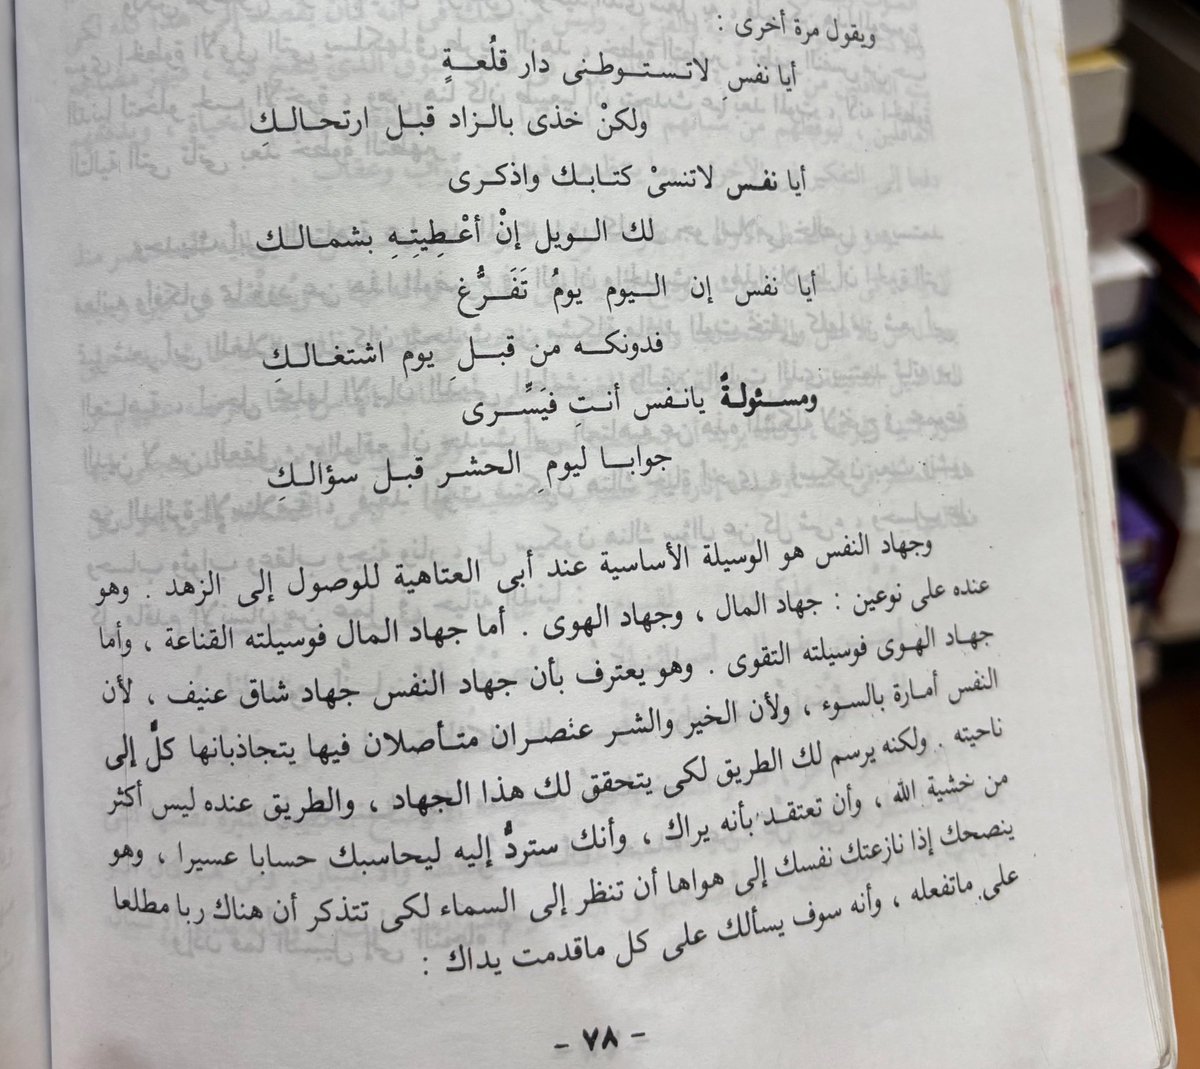 ويقول مرة أخرى :
أيا نفسِ لاتستوطنى دار قلُعةٍ
ولكنْ خذى بالزاد قبل ارتحالكِ
أيا نفس لاتنسىْ كتابك واذكرى
لك الويل إنْ أعْطِيتِهِ بشمالك
أيا نفس إن اليوم يومُ تَفَرُّغ
فدونكه من قبلِ يوم اشتغالكِ
ومسئولةٌ يانفس أنتِ فيَسِّرى
جوابا ليومِ الحشر قبل سؤالكِ
وجهاد النفس هو الوسيلة الأساسية عند أبى العتاهية للوصول إلى الزهد . وهو
عنده على نوعين : جهاد المال ، وجهاد الهوى . أما جهاد المال فوسيلته القناعة ، وأما
جهاد الهوى فوسيلته التقوى . وهو يعترف بأن جهاد النفس جهاد شاق عنيف ، لأن
النفس أمارة بالسوء ، ولأن الخير والشر عنصران متأصلان فيها يتجاذبانها كلٌّ إلى
ناحيته . ولكنه يرسم لك الطريق لكى يتحقق لك هذا الجهاد ، والطريق عنده ليس أكثر
من خشية الله ، وأن تعتقد بأنه يراك ، وأنك ستردُّ إليه ليحاسبك حسابا عسيرا ، وهو
ينصحك إذا نازعتك نفسك إلى هواها أن تنظر إلى السماء لكى تتذكر أن هناك ربا مطلعا
على ماتفعله ، وأنه سوف يسألك على كل ماقدمت يداك :
- ٧٨ -